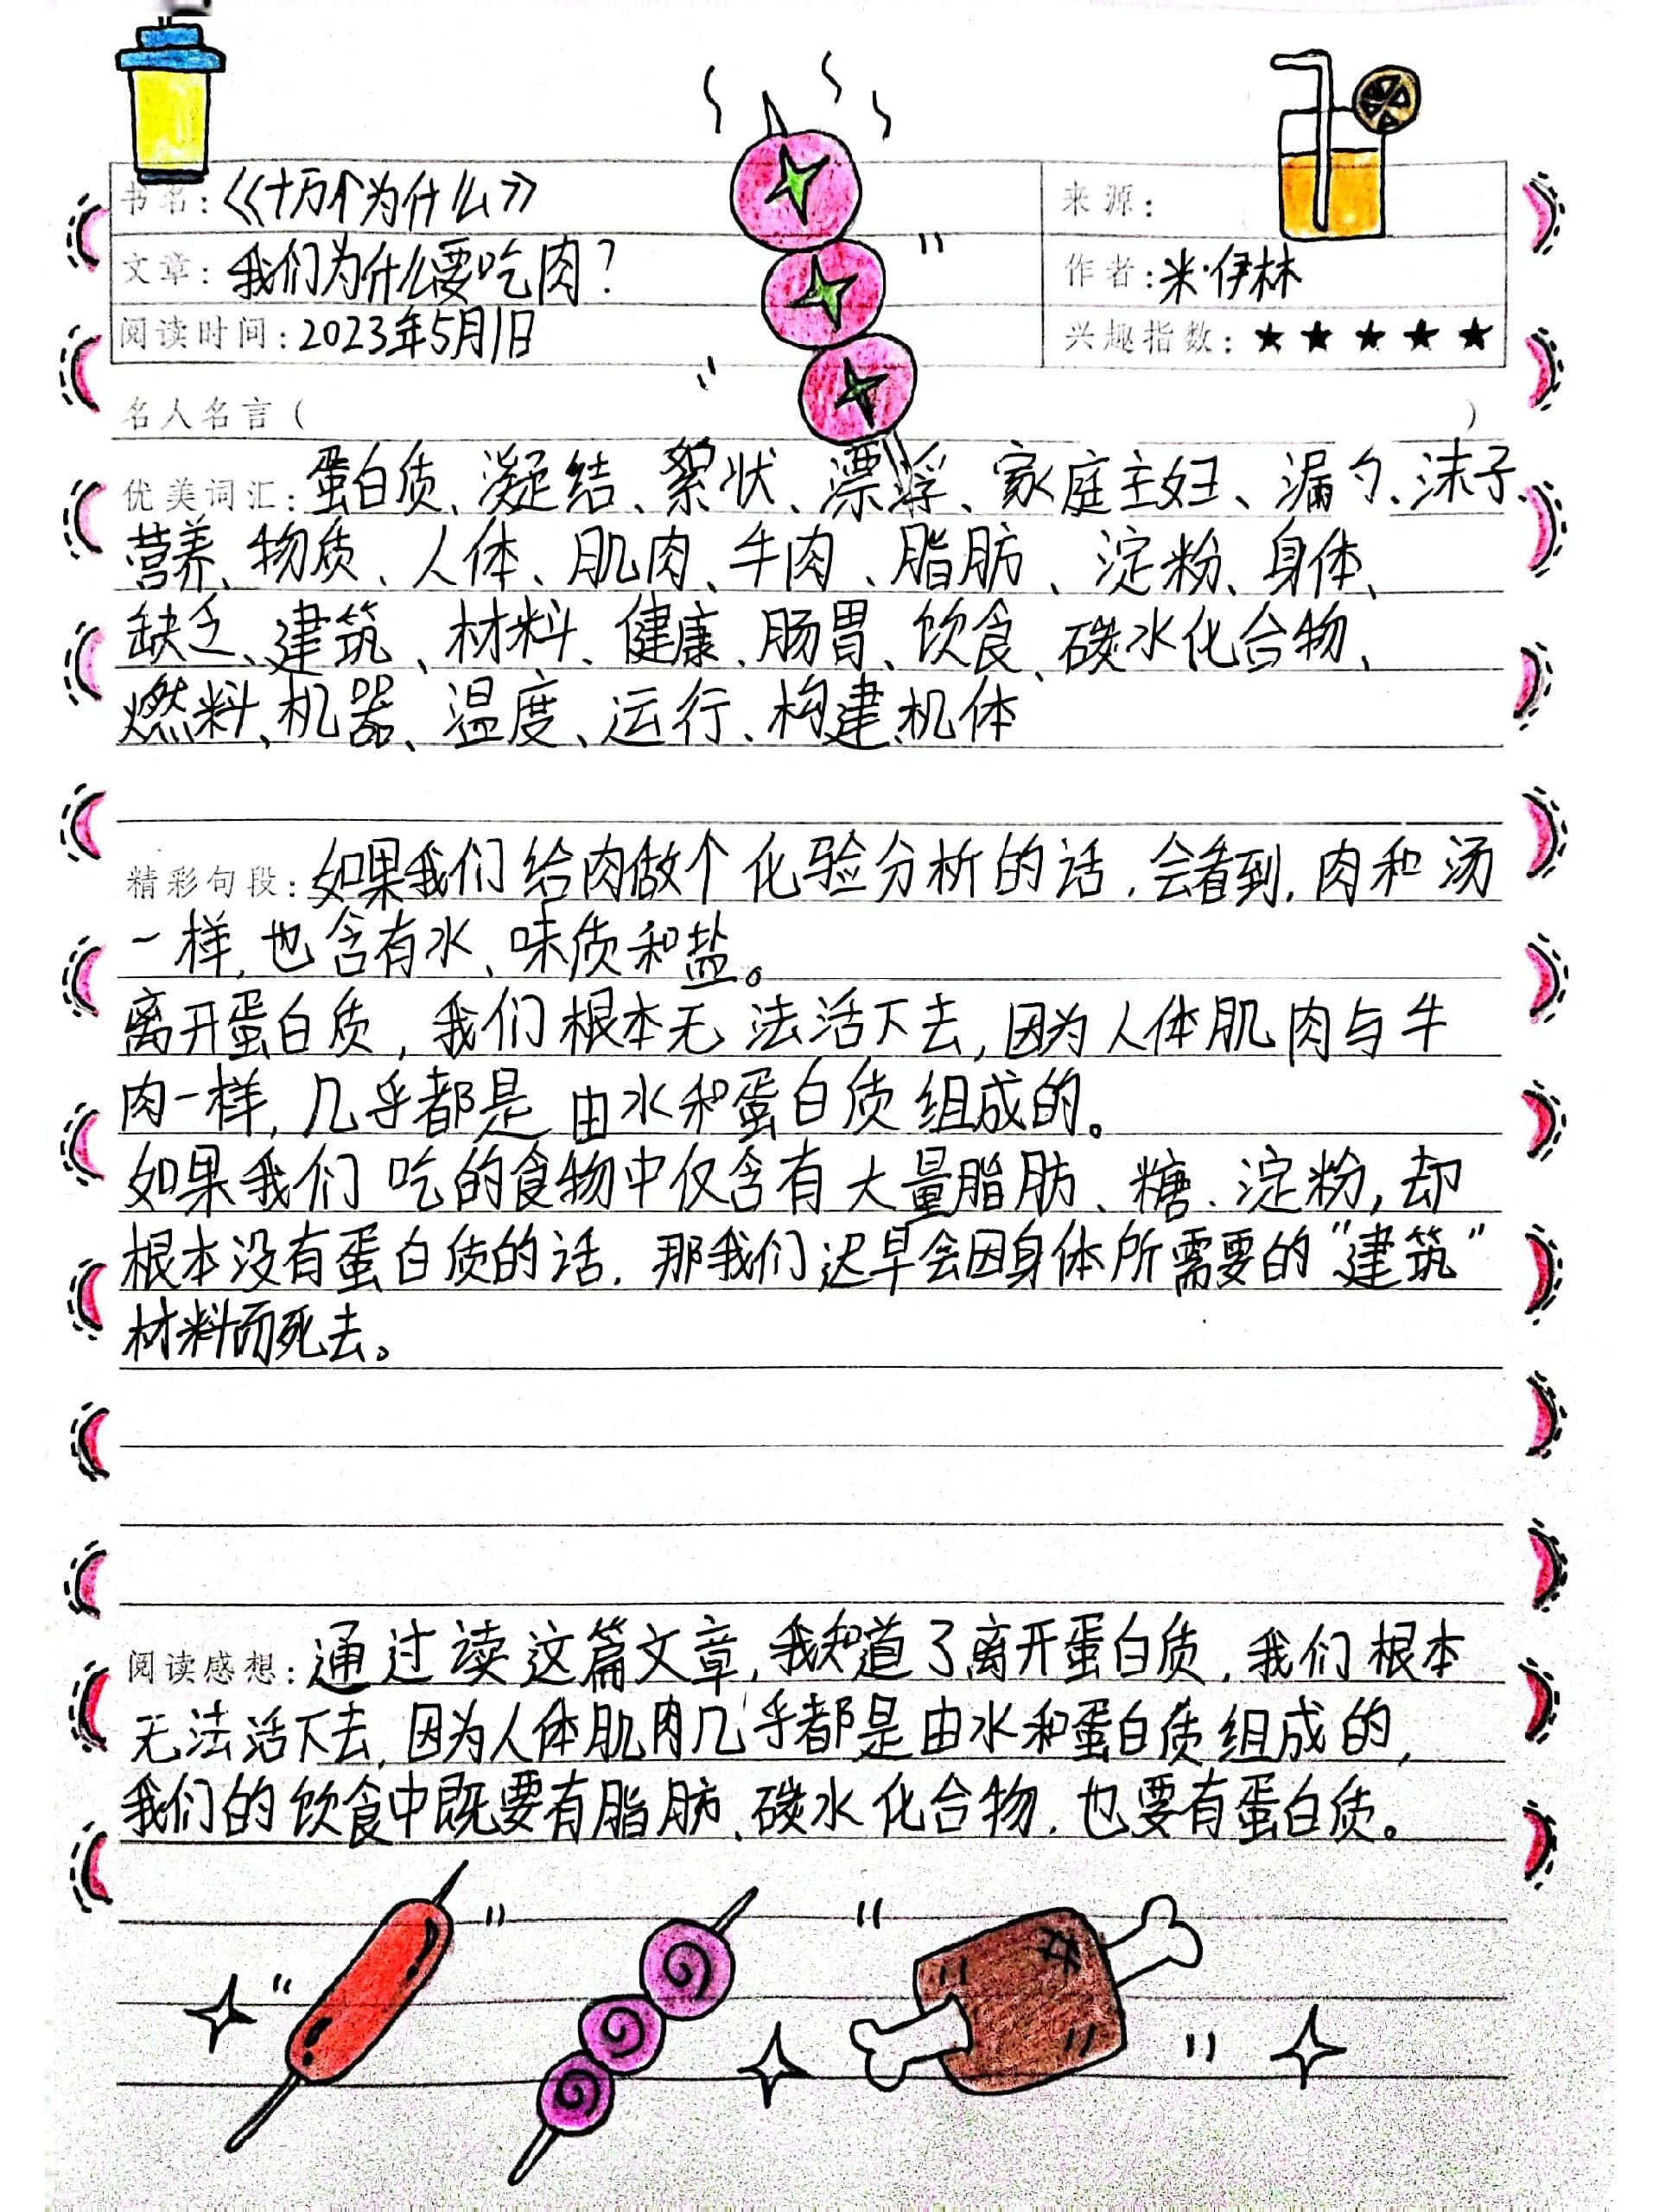 书名：《十万个为什么》
来源：
文章：我们为什么要吃肉？
作者：米·伊林
阅读时间：2023年5月1日
兴趣指数：★★★★★
名人名言（ ）
优美词汇：蛋白质、凝结、絮状、漂浮、家庭主妇、漏勺、沫子、
营养、物质、人体、肌肉、牛肉、脂肪、淀粉、身体、
缺乏、建筑、材料、健康、肠胃、饮食、碳水化合物、
燃料、机器、温度、运行、构建、机体
精彩句段：如果我们给肉做个化验分析的话，会看到，肉和汤
一样，也含有水、味质和盐。
离开蛋白质，我们根本无法活下去，因为人体肌肉与牛
肉一样，几乎都是由水和蛋白质组成的。
如果我们吃的食物中仅含有大量脂肪、糖、淀粉，却
根本没有蛋白质的话，那我们迟早会因身体所需要的“建筑”
材料而死去。
阅读感想：通过读这篇文章，我知道了离开蛋白质，我们根本
无法活下去，因为人体肌肉几乎都是由水和蛋白质组成的，
我们的饮食中既要有脂肪、碳水化合物，也要有蛋白质。